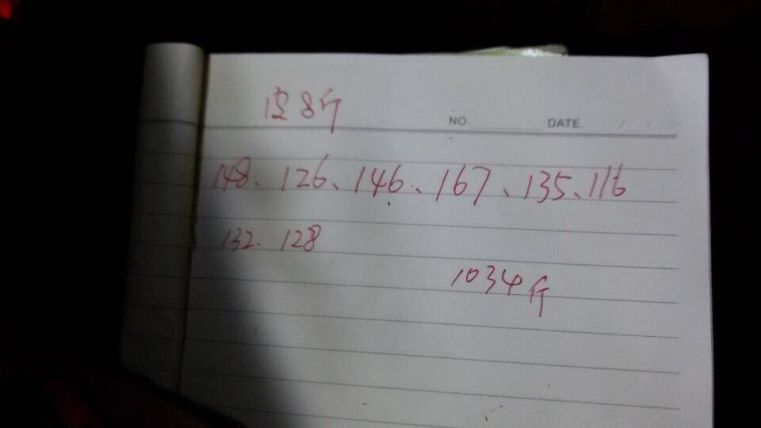 皮8斤
NO. DATE. / /
148、126、146、167、135、116
132、128
1034斤